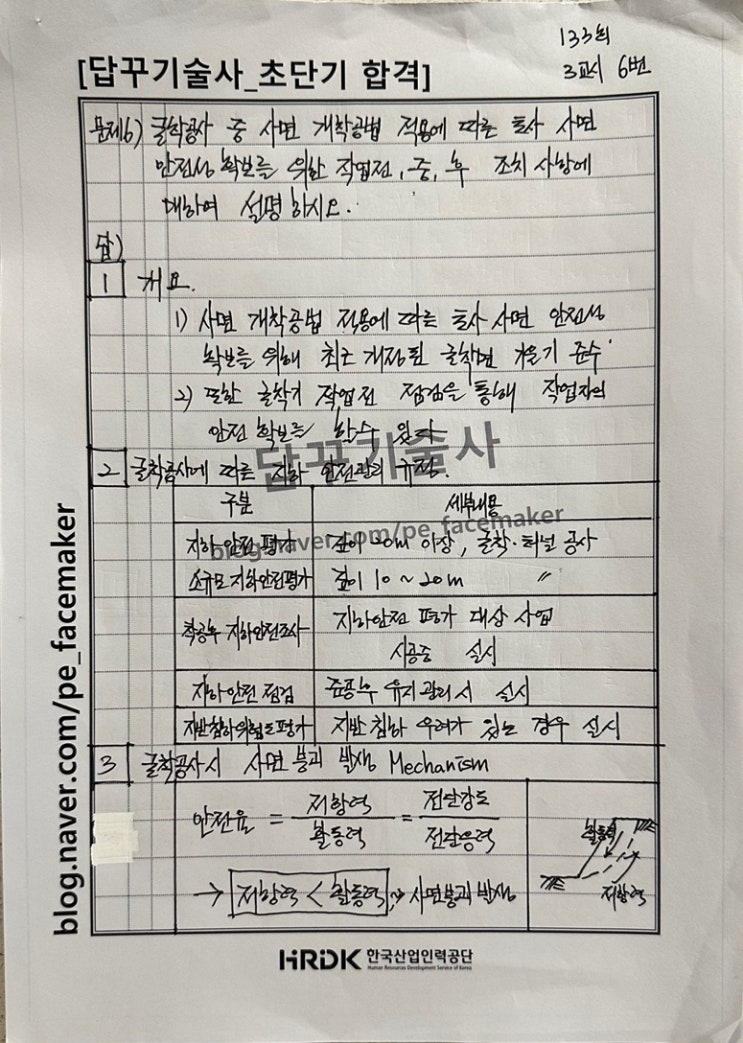 133회
3교시 6번
[답꾸기술사_초단기 합격]
문제6) 굴착공사 중 사면 개착공법 적용에 따른 토사 사면
안전성 확보를 위한 작업전, 중, 후 조치 사항에
대하여 설명하시오.
답)
1 개요.
1) 사면 개착공법 적용에 따른 토사 사면 안전성
확보를 위해 최근 개정된 굴착면 기울기 준수
2) 또한 굴착기 작업전 점검을 통해 작업자의
안전 확보를 할수 있다
답꾸기술사
2 굴착공사에 따른 지하 안전관리 규정.
구분 세부내용
blog.naver.com/pe_facemaker
지하안전평가 깊이 20m 이상, 굴착·터널 공사
소규모 지하안전평가 깊이 10~20m 〃
착공후 지하안전조사 지하안전 평가 대상 사업
시공중 실시
지하안전점검 준공후 유지관리시 실시
지반침하위험도평가 지반침하 우려가 있는 경우 실시
3 굴착공사시 사면 붕괴 발생 Mechanism
안전율 = 저항력 / 활동력 = 전단강도 / 전단응력
→ 저항력 < 활동력 ⇢ 사면붕괴 발생
활동력
저항력
blog.naver.com/pe_facemaker
HRDK 한국산업인력공단
Human Resources Development Service of Korea